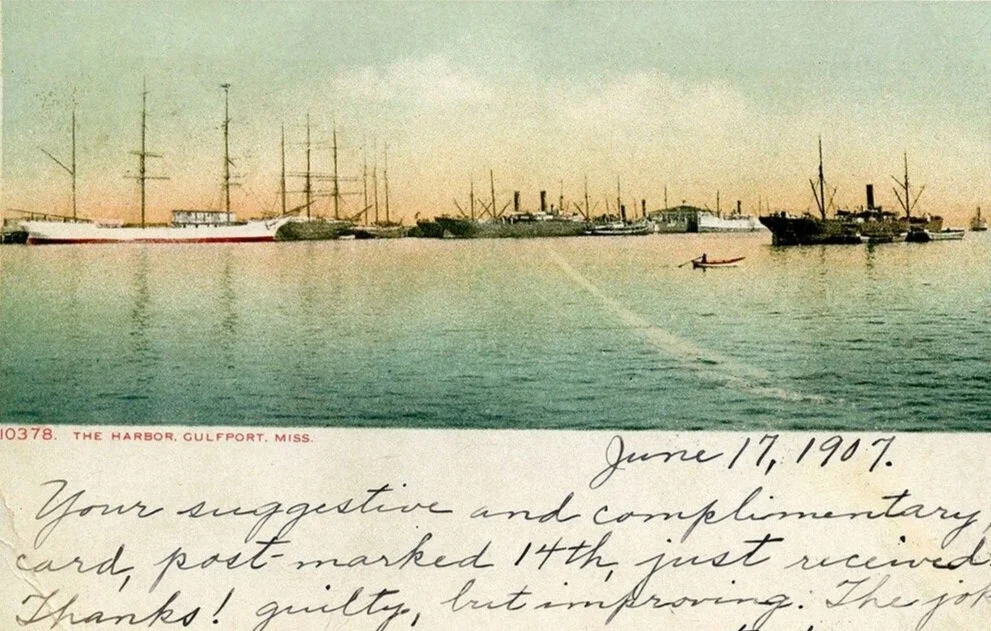 10378. THE HARBOR, GULFPORT, MISS.
June 17, 1907.
Your suggestive and complimentary
card, post-marked 14th, just received.
Thanks! guilty, but improving. The